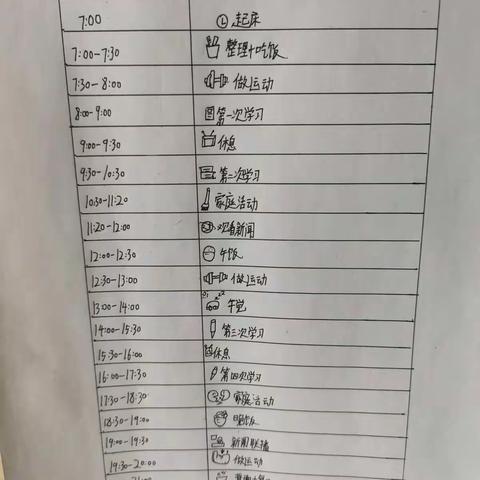 7:00 起床
7:00-7:30 整理+吃饭
7:30-8:00 做运动
8:00-9:00 第一次学习
9:00-9:30 休息
9:30-10:30 第二次学习
10:30-11:20 家庭活动
11:20-12:00 观看新闻
12:00-12:30 午饭
12:30-13:00 做运动
13:00-14:00 午觉
14:00-15:30 第三次学习
15:30-16:00 休息
16:00-17:30 第四次学习
17:30-18:30 家庭活动
18:30-19:00 晚饭
19:00-19:30 新闻联播
19:30-20:00 做运动